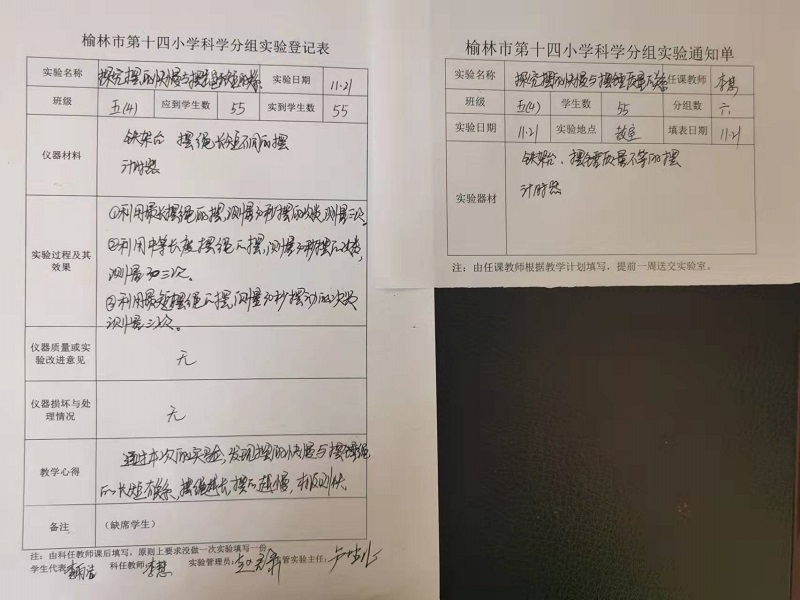 榆林市第十四小学科学分组实验登记表
实验名称 探究摆的快慢与摆绳长短的关系 实验日期 11.21
班级 五(4) 应到学生数 55 实到学生数 55
仪器材料
铁架台 摆绳长短不同的摆
计时器
实验过程及其效果
①利用最长摆绳的摆,测量30秒摆的次数,测量三次。
②利用中等长度摆绳的摆,测量30秒摆的次数,
测量三次。
③利用最短摆绳的摆,测量30秒摆动的次数
测量三次。
仪器质量或实验改进意见 无
仪器损坏与处理情况 无
教学心得
通过本次的实验,发现摆的快慢与摆绳
的长短有关系,摆绳越长摆的越慢,相反则快
备注 (缺席学生)
注:由科任教师课后填写,原则上要求没做一次实验填写一份
学生代表 科任教师 李慧 实验管理员: 管实验主任:
榆林市第十四小学科学分组实验通知单
实验名称 探究摆的快慢与摆锤质量关系 任课教师 李慧
班级 五(4) 学生数 55 分组数 六
实验日期 11.21 实验地点 教室 填表日期 11.21
实验器材
铁架台、摆锤质量不等的摆
计时器
注:由任课教师根据教学计划填写,提前一周送交实验室。